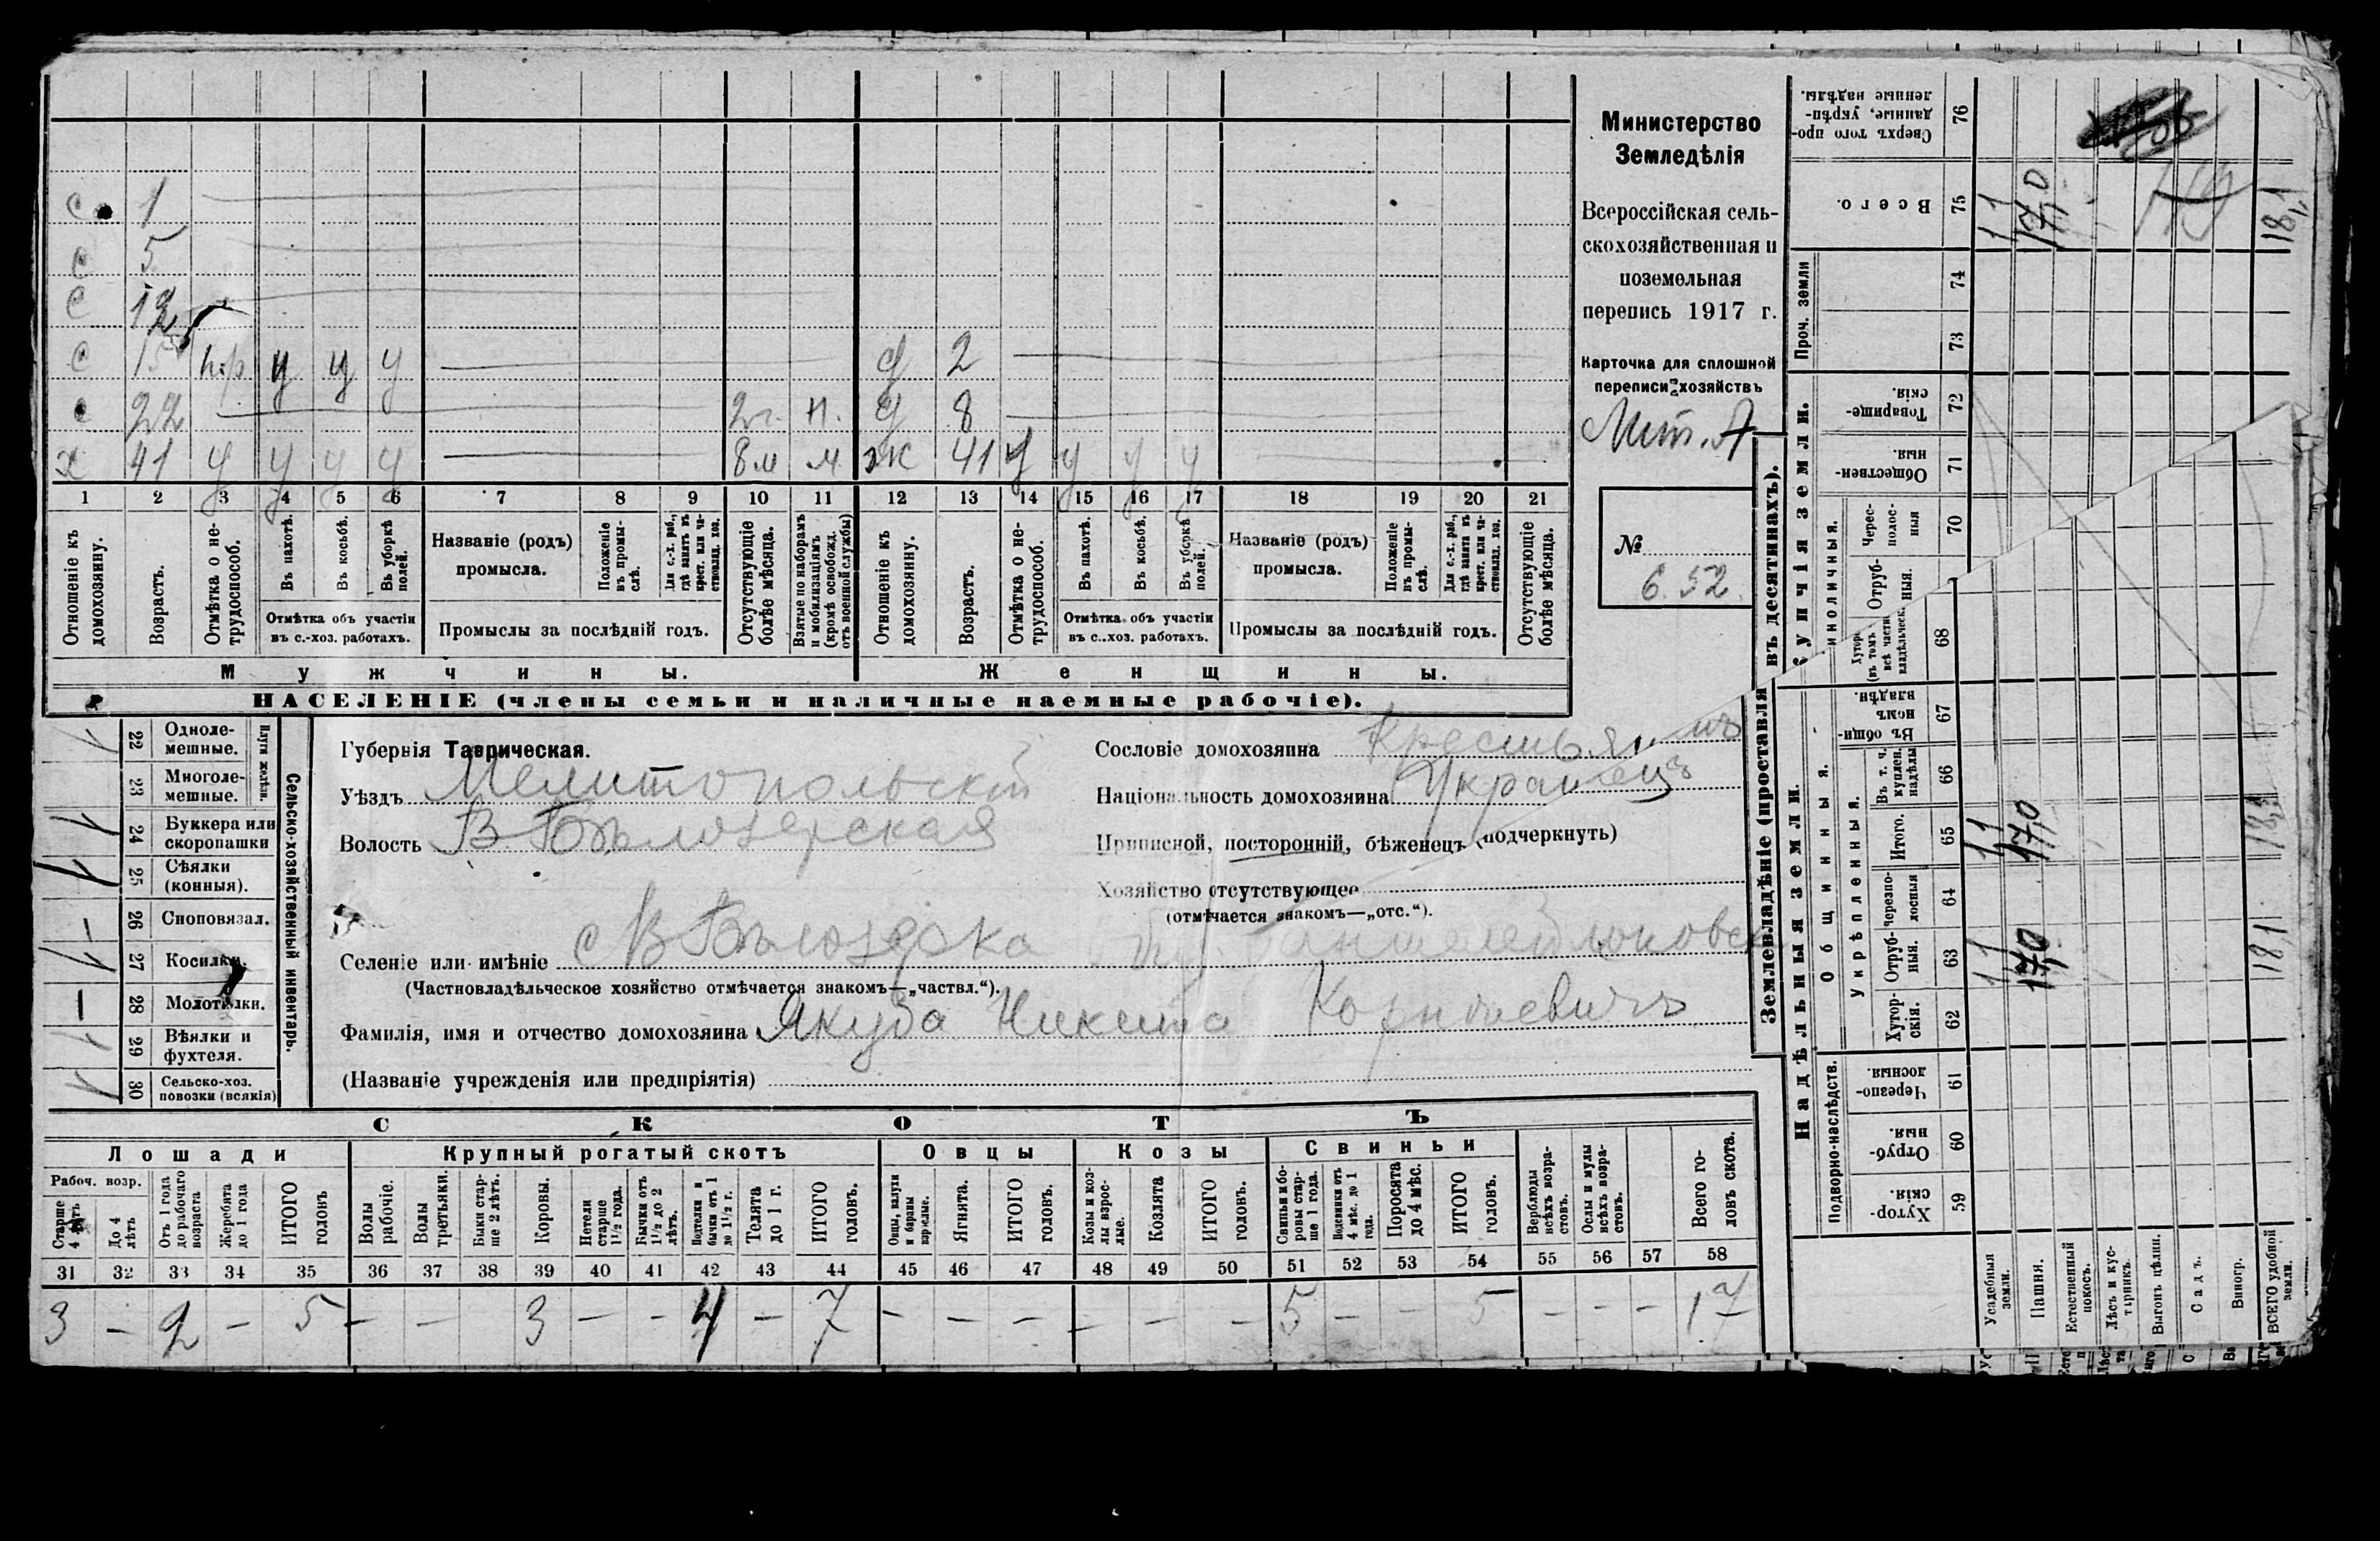 с 1
с 5
с 12
с 15 н.р у у у — д 2
с 22 2 г. п. д 8
х 41 у у у у — 8 м м ж 41 у у у у
1 2 3 4 5 6 7 8 9 10 11 12 13 14 15 16 17 18 19 20 21
Отношеніе къ домохозяину.
Возрастъ.
Отмѣтка о не-
трудоспособ.
Въ пахотѣ.
Въ косьбѣ.
Въ уборкѣ полей.
Отмѣтка объ участіи
въ с.-хоз. работахъ.
Названіе (родъ)
промысла.
Положеніе въ промы-
слѣ.
Для с.-х. раб., гдѣ занятъ въ крест. или ча-
ствовлад. хоз.
Промыслы за послѣдній годъ.
Отсутствующіе болѣе мѣсяца.
Взятые по наборамъ и мобилизаціямъ (кромѣ освобожд. отъ военной службы)
Отношеніе къ домохозяину.
Возрастъ.
Отмѣтка о не-
трудоспособ.
Въ пахотѣ.
Въ косьбѣ.
Въ уборкѣ полей.
Отмѣтка объ участіи
въ с.-хоз. работахъ.
Названіе (родъ)
промысла.
Положеніе въ промы-
слѣ.
Для с.-х. раб., гдѣ занята въ крест. или ча-
ствовлад. хоз.
Промыслы за послѣдній годъ.
Отсутствующіе болѣе мѣсяца.
Мужчины. Женщины.
НАСЕЛЕНІЕ (члены семьи и наличные наемные рабочіе).
Министерство
Земледѣлія
Всероссійская сель-
скохозяйственная и
поземельная
перепись 1917 г.
Карточка для сплошной
переписи хозяйствъ
Лит. А
№
6.52.
22 Одноле-
мешные.
23 Многоле-
мешные.
Плуги желѣзн.
24 Буккера или
скоропашки
25 Сѣялки
(конныя).
26 Сноповязал. —
27 Косилки.
28 Молотилки. —
29 Вѣялки и
фухтеля.
30 Сельско-хоз.
повозки (всякія)
Сельско-хозяйственный инвентарь.
Губернія Таврическая.
Уѣздъ Мелитопольскій
Волость В. Бѣлозерская
Селеніе или имѣніе с В Бѣлозерка
(Частновладѣльческое хозяйство отмѣчается знакомъ—„частвл.“).
Фамилія, имя и отчество домохозяина Якуба Никита Корнѣевичъ
(Названіе учрежденія или предпріятія)
Сословіе домохозяина Крестьянинъ
Національность домохозяина Украинецъ
Приписной, посторонній, бѣженецъ (подчеркнуть)
Хозяйство отсутствующее
(отмѣчается знакомъ—„отс.“).
СКОТЪ
Лошади
Рабоч. возр.
Старше 4 лѣтъ
До 4 лѣтъ
Отъ 1 года до рабочаго возраста
Жеребята до 1 года
ИТОГО головъ
Крупный рогатый скотъ
Волы рабочіе.
Волы третьяки.
Быки стар-
ше 2 лѣтъ.
Коровы.
Нетели старше 1½ года.
Бычки отъ 1½ до 2 лѣтъ.
Подтелки и бычки отъ 1 до 1½ г.
Телята до 1 г.
ИТОГО головъ.
Овцы
Овцы, валухи и бараны взрослые.
Ягнята.
ИТОГО головъ.
Козы
Козы и коз-
лы взрос-
лые.
Козлята
ИТОГО головъ.
Свиньи
Свиньи и бо-
ровы стар-
ше 1 года.
Подсвинки отъ 4 мѣс. до 1 года.
Поросята до 4 мѣс.
ИТОГО головъ.
Верблюды всѣхъ возра-
стовъ.
Ослы и мулы всѣхъ возра-
стовъ.
Всего го-
ловъ скота.
31 32 33 34 35 36 37 38 39 40 41 42 43 44 45 46 47 48 49 50 51 52 53 54 55 56 57 58
3 — 2 — 5 — — 3 — — 4 — 7 — — — — — — 5 — — 5 — — — 17
Землевладѣніе (проставля въ десятинахъ).
Купчія земли.
Надѣльныя земли.
Сверхъ того про-
данные, укрѣп-
ленные надѣлы.
76
Всего.
75
1,1 17,0 18,1
Проч. земли
74
73
Товарище-
скія.
72
Обществен-
ныя.
71
Черес-
полос-
ныя
70
Отруб-
ныя.
68
Общинныя.
Въ общи-
номъ
владѣн.
67
Укрѣпленныя.
Въ т. ч. куплен. надѣлы
66
Итого.
65
1,1 17,0 18,1
Черезпо-
лосныя
64
Отруб-
ныя.
63
1,1 17,0 18,1
Хутор-
скія.
62
Подворно-наслѣдств.
Черезпо-
лосныя.
61
Отруб-
ныя.
60
Хутор-
скія.
59
Усадебныя земли.
Пашня.
Естественный покосъ.
Лѣсъ и кус-
тарникъ.
Выгонъ цѣлин.
Садъ.
Виногр.
ВСЕГО удобной земли.